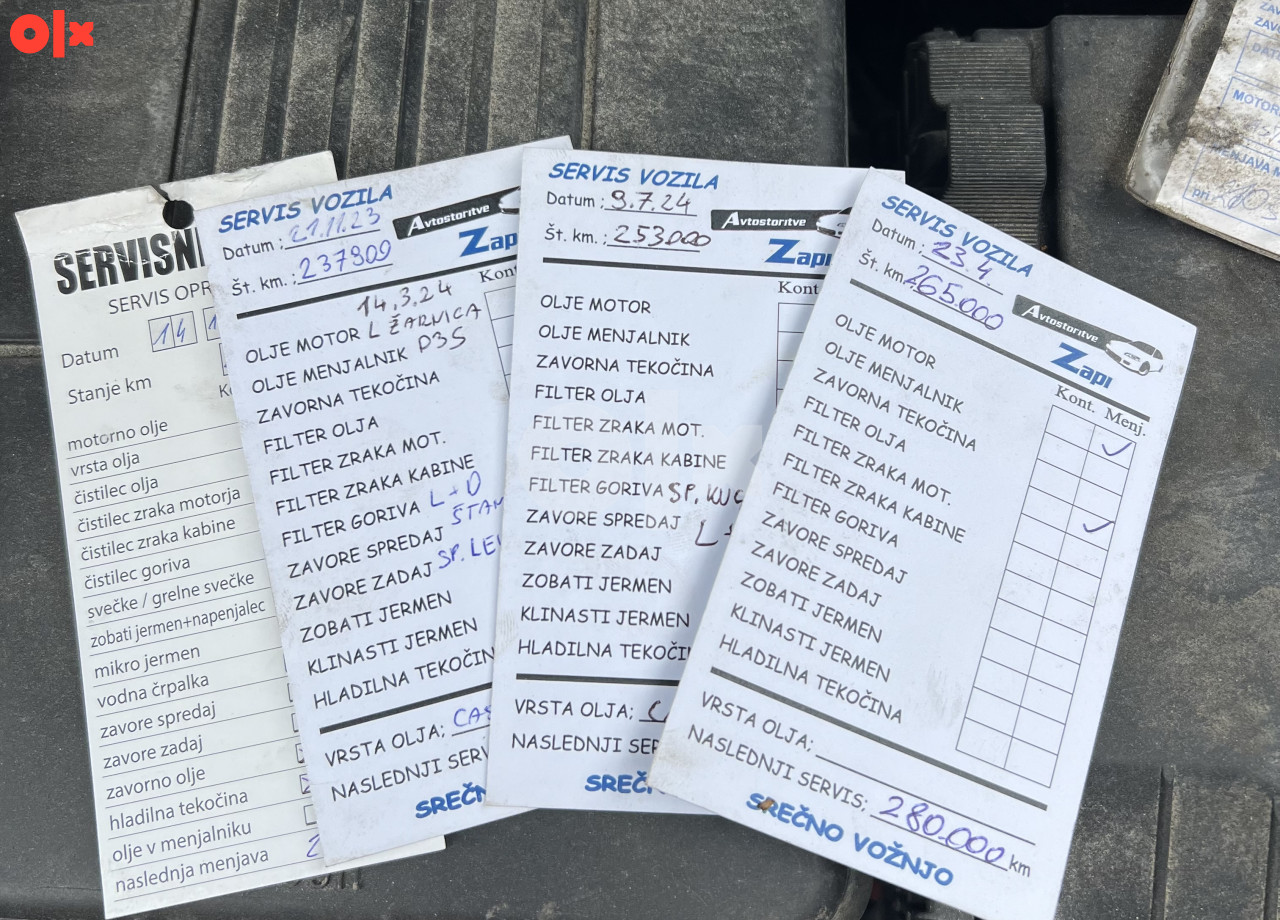 olx
SERVISNI
SERVIS OPR
Datum 14
Stanje km
motorno olje
vrsta olja
čistilec olja
čistilec zraka motorja
čistilec zraka kabine
čistilec goriva
svečke / grelne svečke
zobati jermen+napenjalec
mikro jermen
vodna črpalka
zavore spredaj
zavore zadaj
zavorno olje
hladilna tekočina
olje v menjalniku
naslednja menjava 2
SERVIS VOZILA
Datum : 21.11.23
Avtostoritve
Zapi
Št. km.: 237809
Kont
14.3.24
OLJE MOTOR L ŽARNICA
OLJE MENJALNIK P3S
ZAVORNA TEKOČINA
FILTER OLJA
FILTER ZRAKA MOT.
FILTER ZRAKA KABINE
FILTER GORIVA L+D
ZAVORE SPREDAJ ŠTAM
ZAVORE ZADAJ SP. LEV
ZOBATI JERMEN
KLINASTI JERMEN
HLADILNA TEKOČIN
VRSTA OLJA; CAS
NASLEDNJI SERV
SREČN
SERVIS VOZILA
Datum : 9.7.24
Avtostoritve
Zapi
Št. km.: 253000
Kont
OLJE MOTOR
OLJE MENJALNIK
ZAVORNA TEKOČINA
FILTER OLJA
FILTER ZRAKA MOT.
FILTER ZRAKA KABINE
FILTER GORIVA SP.
ZAVORE SPREDAJ L+
ZAVORE ZADAJ
ZOBATI JERMEN
KLINASTI JERMEN
HLADILNA TEKOČI
VRSTA OLJA; C
NASLEDNJI SER
SREČ
SERVIS VOZILA
Datum : 23.4.
Št. km. 265.000
Avtostoritve
Zapi
Kont. Menj.
OLJE MOTOR ✓
OLJE MENJALNIK
ZAVORNA TEKOČINA
FILTER OLJA ✓
FILTER ZRAKA MOT.
FILTER ZRAKA KABINE
FILTER GORIVA
ZAVORE SPREDAJ
ZAVORE ZADAJ
ZOBATI JERMEN
KLINASTI JERMEN
HLADILNA TEKOČINA
VRSTA OLJA;
NASLEDNJI SERVIS; 280.000 km
SREČNO VOŽNJO
ZAVO
DAT
MOTOR
MENJAVA M
pri